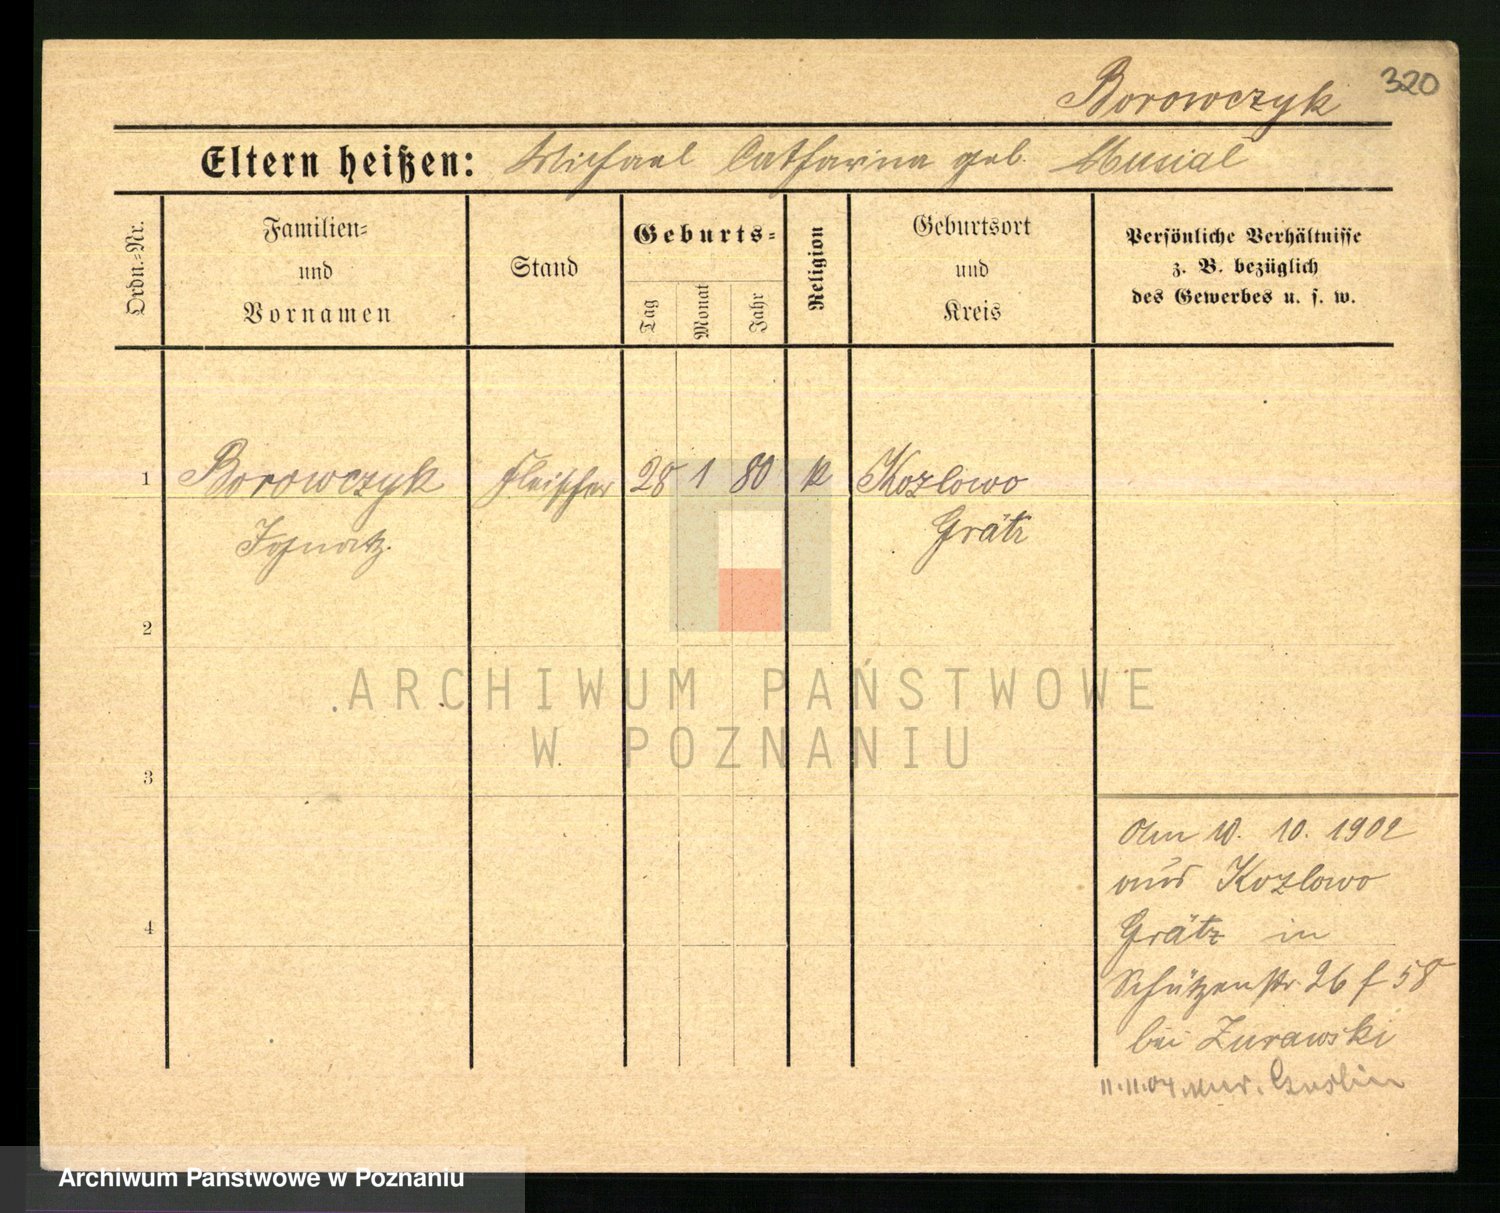 320
Borowczyk
Eltern heißen: Michael Catharina geb. Musial
Ordn.-Nr.
Familien-
und
Vornamen
Stand
Geburts-
Tag
Monat
Jahr
Religion
Geburtsort
und
Kreis
Persönliche Verhältnisse
z. B. bezüglich
des Gewerbes u. s. w.
1 Borowczyk Fleischer 28 1 80 k Kozlowo
Ignatz. Grätz
2
3
4
Am 10. 10. 1902
aus Kozlowo
Grätz in
Schützenstr. 26 f 58
bei Zurawski
11.11.04
ARCHIWUM PAŃSTWOWE
W POZNANIU
Archiwum Państwowe w Poznaniu